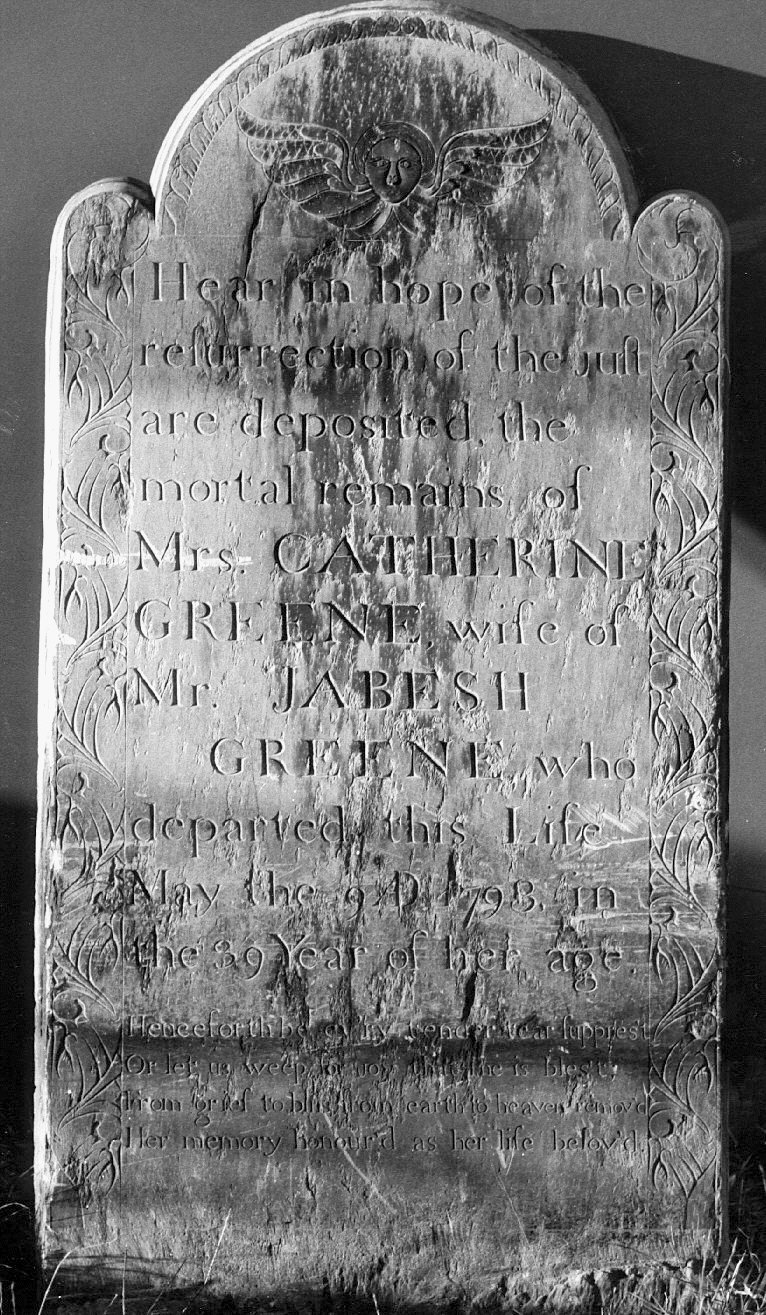 Hear in hope of the
reſurrection of the Juſt
are depoſited, the
mortal remains of
Mrs. CATHERINE
GREENE, wife of
Mr. JABESH
GREENE, who
departed this Life
May the 9 AD 1798, in
the 39 Year of her age.
Henceforth be ev'ry tender tear ſuppreſt
Or let us weep for joy, that ſhe is bleſt;
From grief to bliſs, from earth to heaven remov'd
Her memory honour'd as her life belov'd.